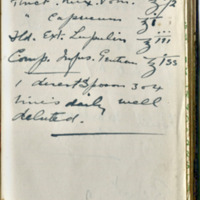 Tinct. Nux. Vom. ℥ ½
" Capsicum ℥ i
Fld. Ext. Lupulin ℥ iii
Comp. Infus. Gentian ℥ iss
1 desert Spoon 3 or 4
times daily well
deluted.